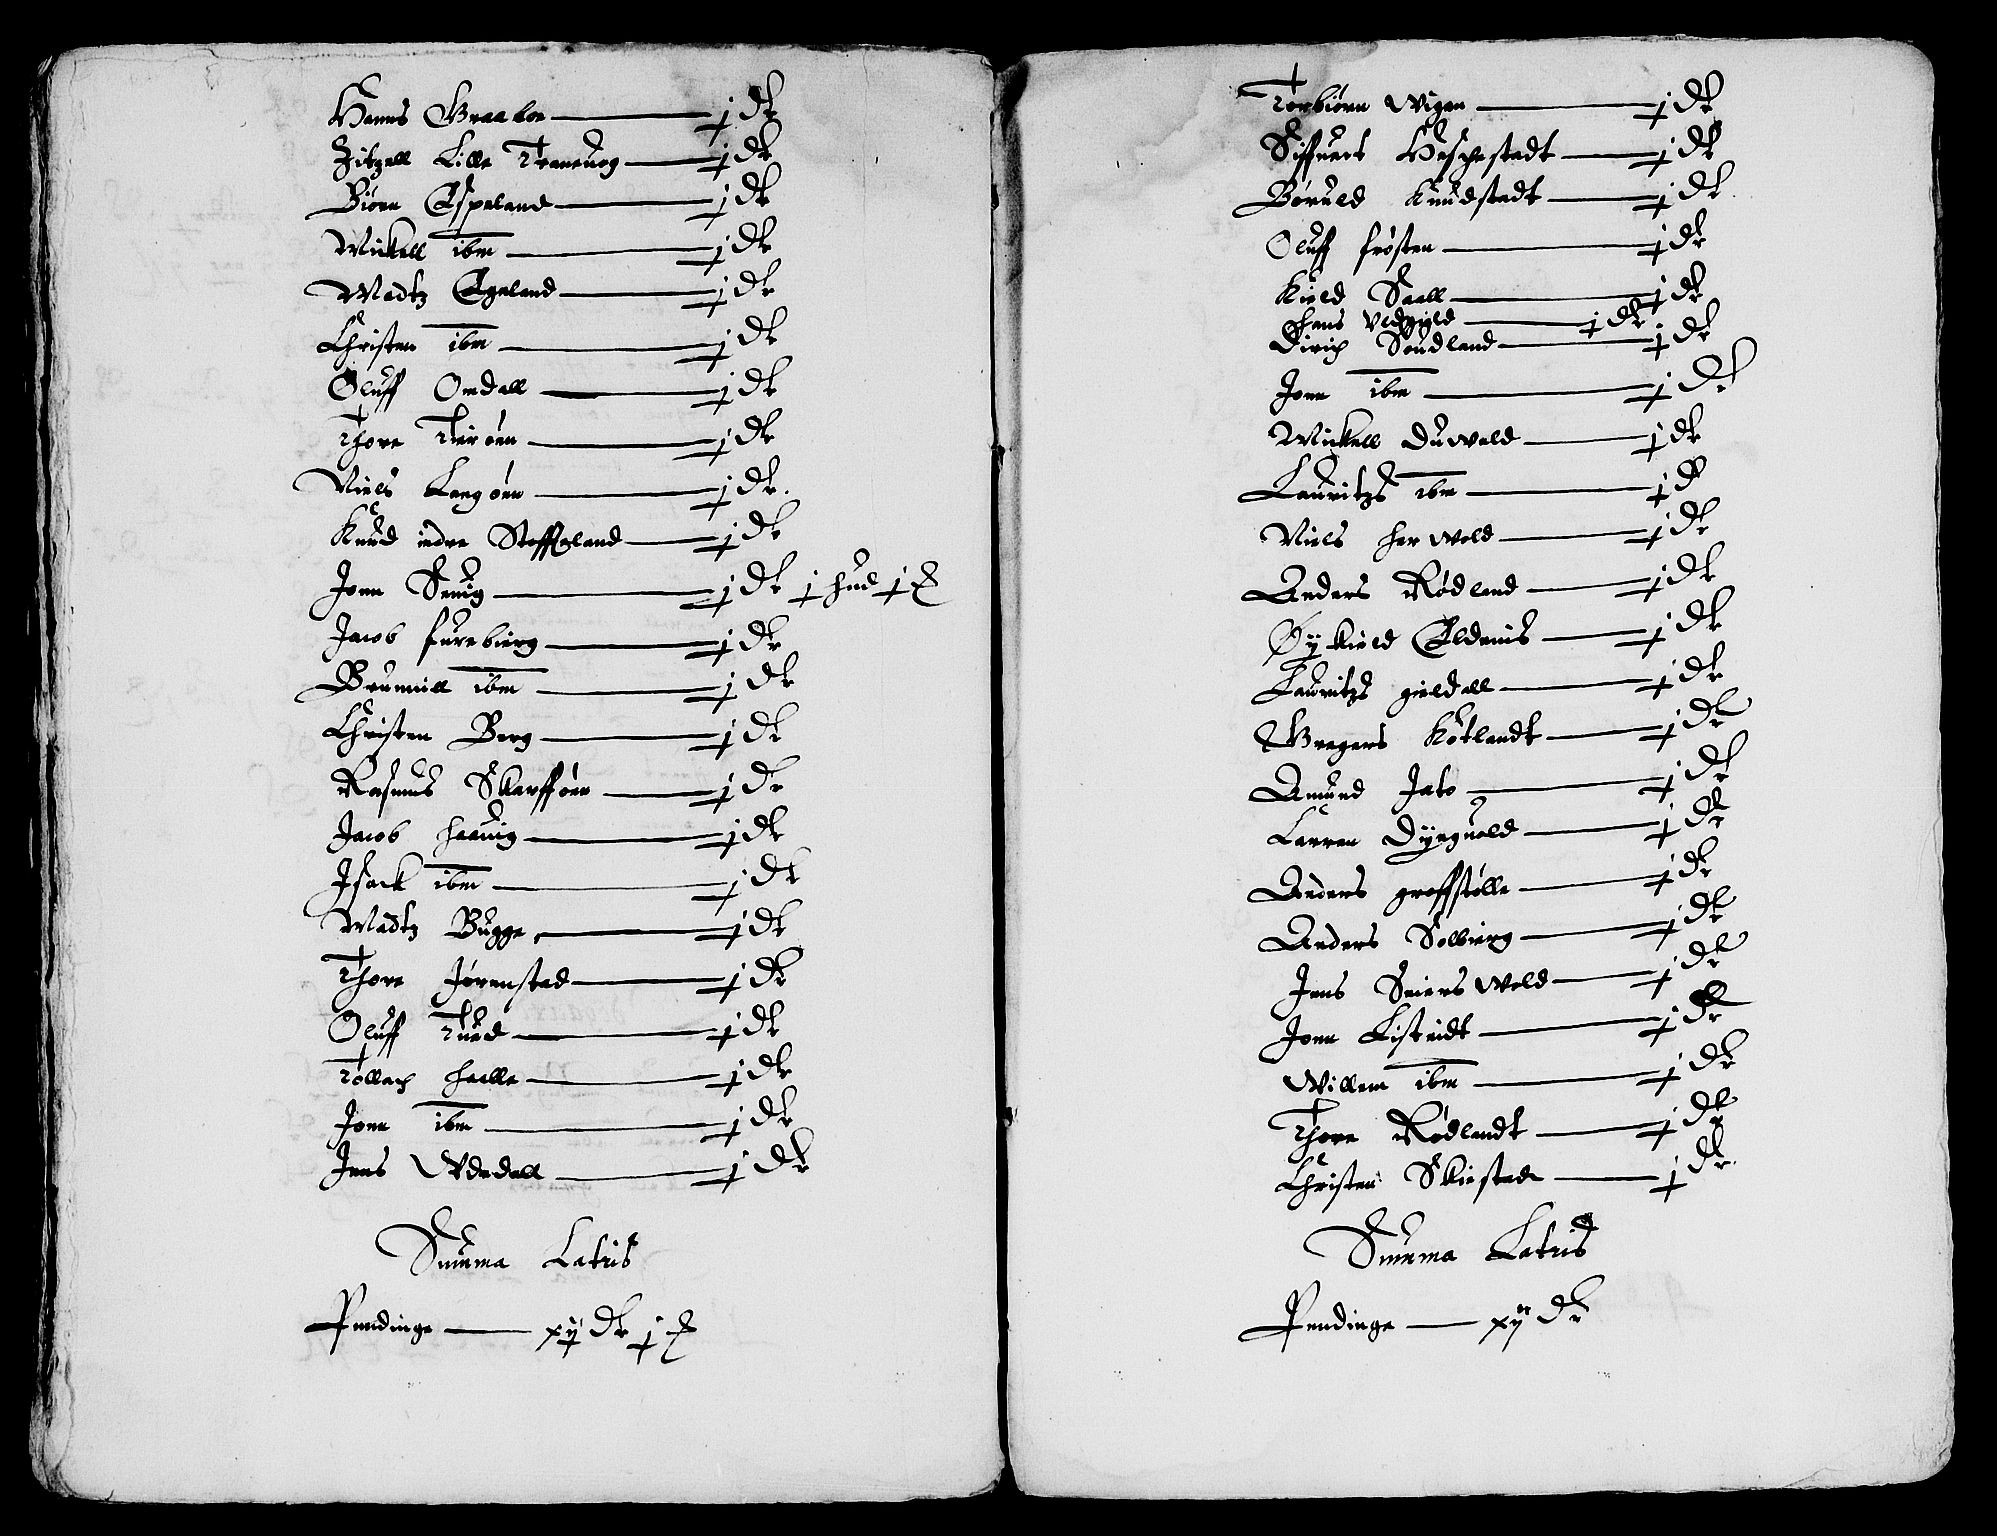 Hanns Braaboe — j dr
Zitzell Lille Traneuog — j dr
Biørn Espeland — j dr
Mickell ibm — j dr
Madtz Egeland — j dr
Christen ibm — j dr
Oluff Omdall — j dr
Thore Tierøen — j dr
Niels Langøen — j dr
Knud indre Steffeland — j dr
Jonn Seuig — j dr j hud j
Jacob furebierg — j dr
Brumill ibm — j dr
Christen Berg — j dr
Rasmus Skarfføen — j dr
Jacob haauig — j dr
Jsack ibm — j dr
Madtz Bugge — j dr
Thore Jørenstad — j dr
Oluff Tued — j dr
Tollach haelle — j dr
Jonn ibm — j dr
Jens Wdedall — j dr
Summa Latris
Pendinge — xij dr j
Torbiørn Wigen — j dr
Siffuert Heschestadt — j dr
Børuld Knudstadt — j dr
Oluff frøsten — j dr
Kield Saall — j dr
hans — j dr
Dirich Soudland — j dr
Jonn ibm — j dr
Mickell Duweld — j dr
Lauritzs ibm — j d
Niels herweld — j dr
Anders Rødland — j dr
Øykield Eldenis — j dr
Lauritzs gieldall — j dr
Gregers Køtlandt — j dr
Amund Jato — j dr
Larren Dyngueld — j dr
Anders groffstølle — j dr
Anders Solbierg — j dr
Jens Seiersweld — j dr
Jonn Listeidt — j dr
Willem ibm — j dr
Thore Rødlandt — j dr
Christen Skiestad — j dr
Summa Latris
Pendinge — xij dr